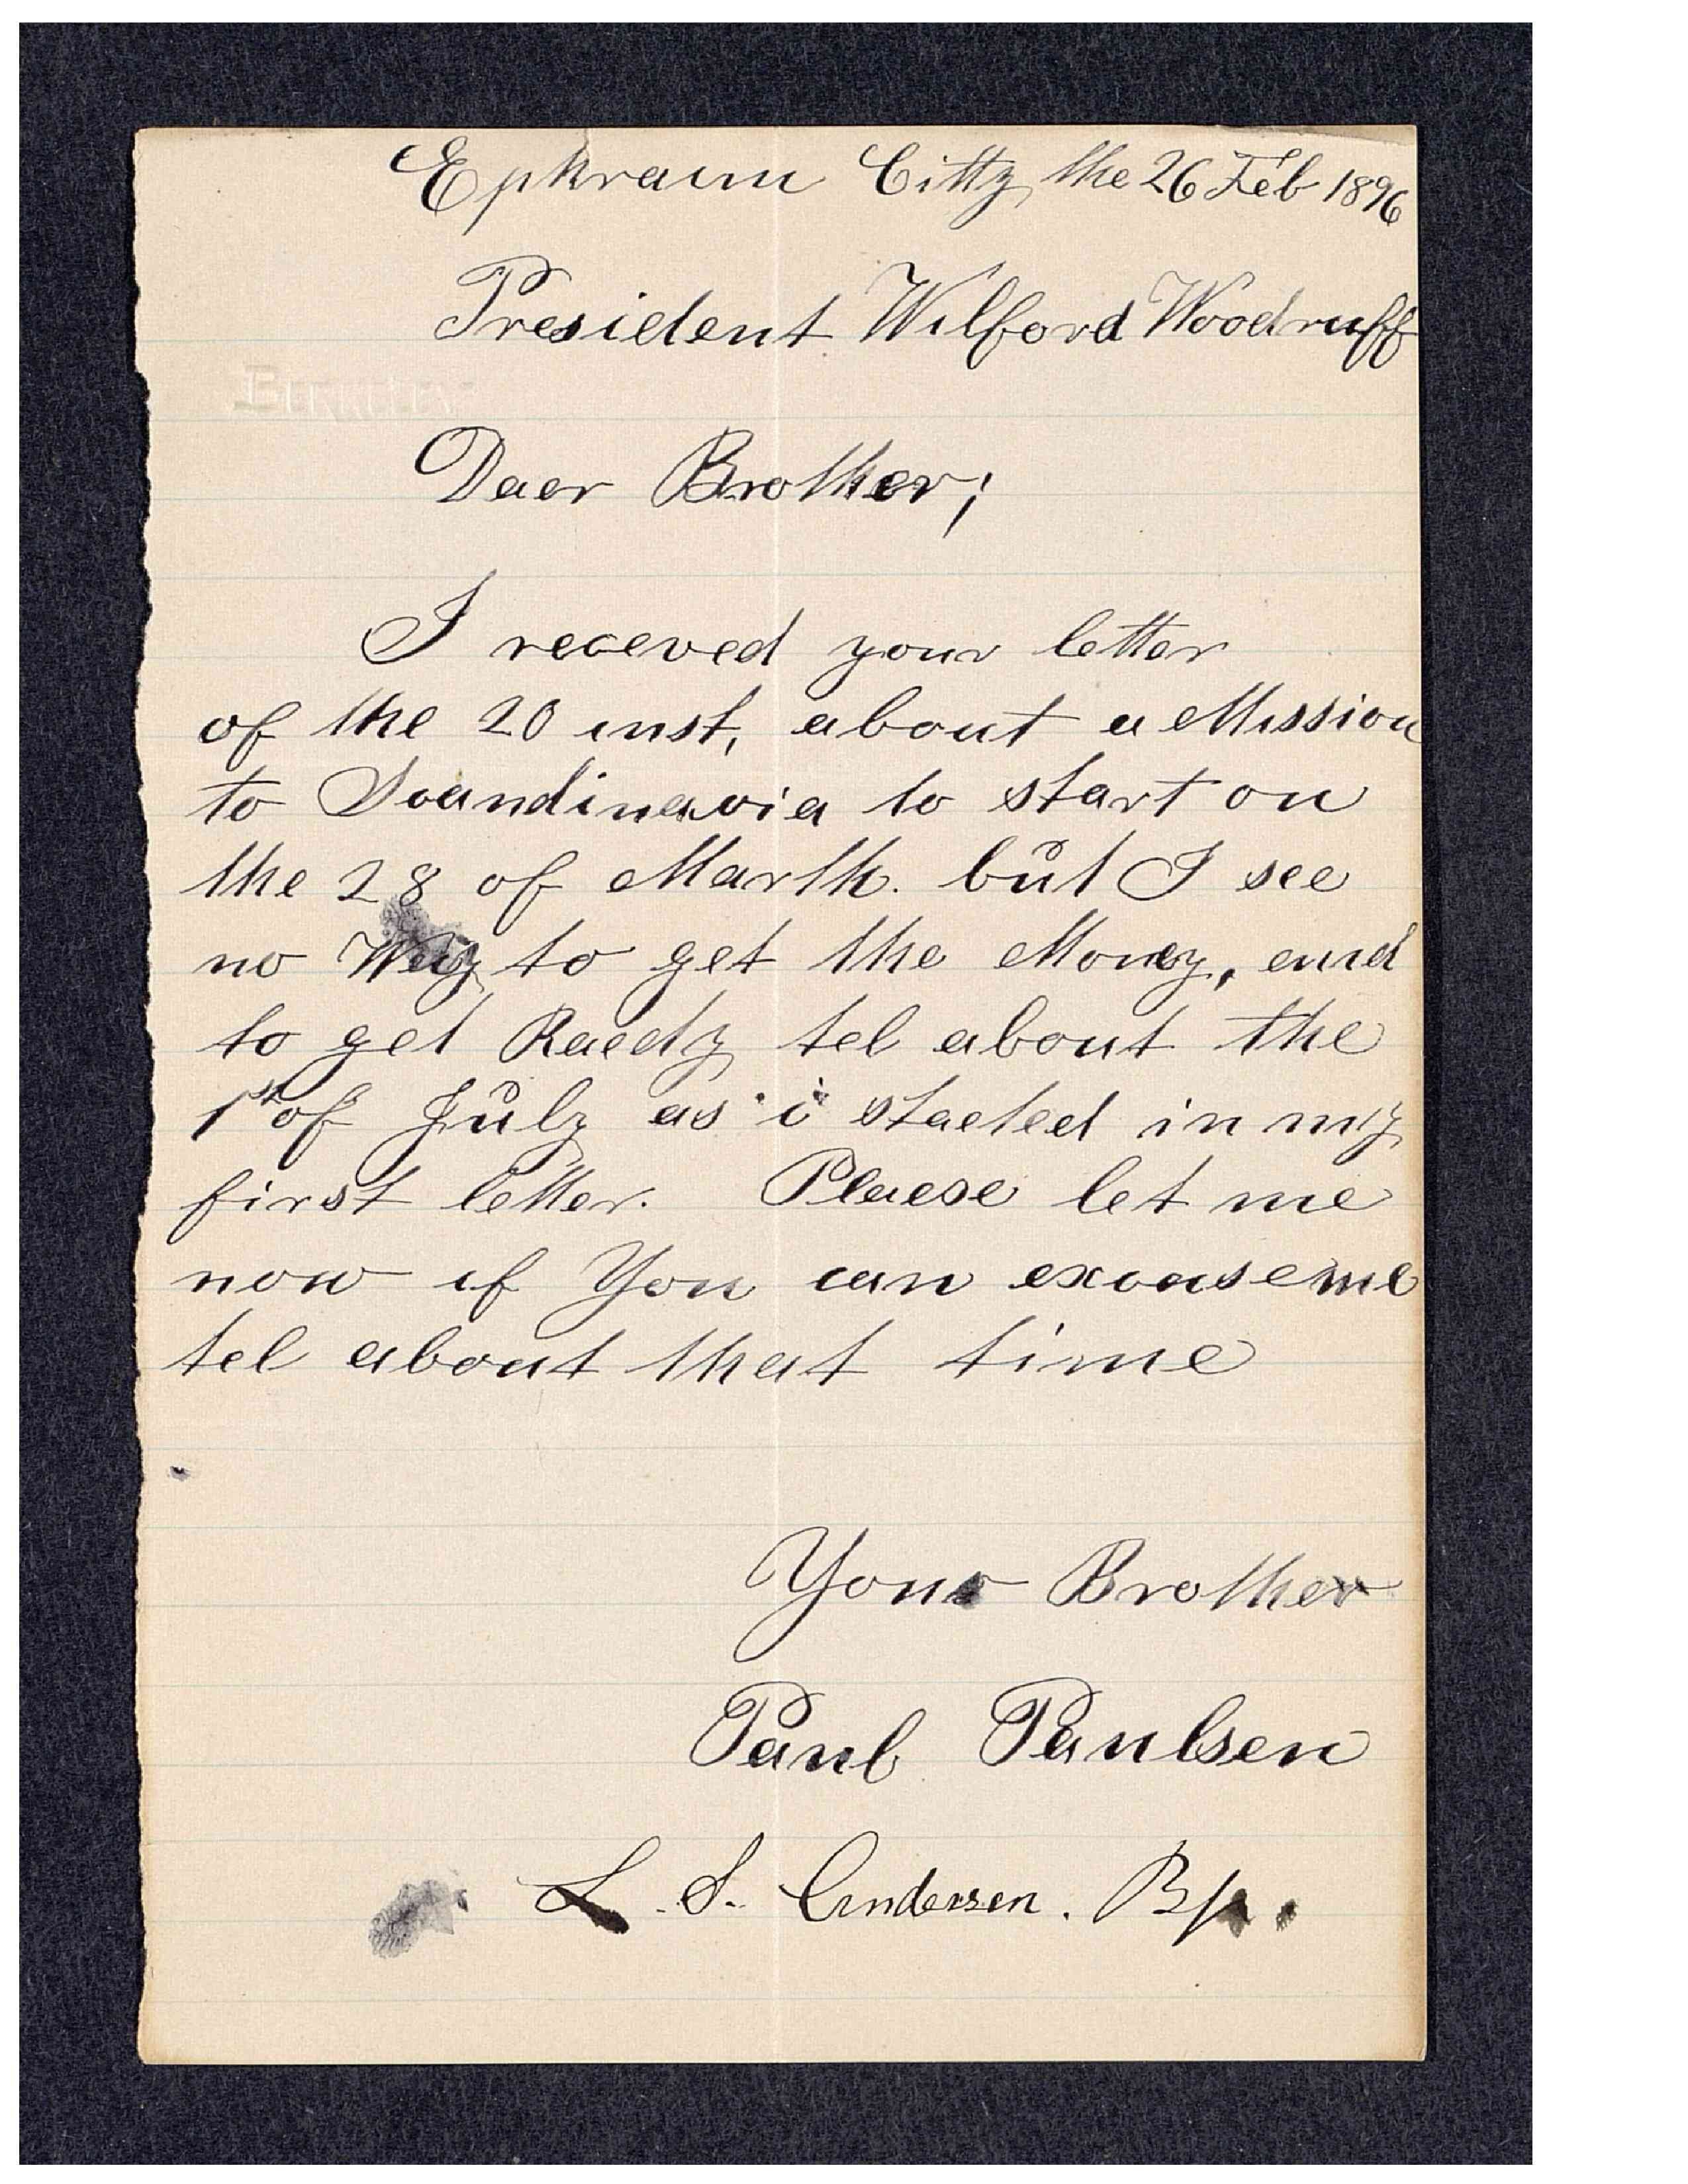 Ephraim Citty, the 26 Feb 1896
President Wilford Woodruff
BERKELEY
Daer Brother;
I receved your letter
of the 20 inst, about a Mission
to Scandinavia to start on
the 28 of Marth. bŭt I see
no Way to get the Money, and
to get Raedy tel about the
1st of Jŭly as i staeted in my
first letter. Plaese let me
now if You can excuse me
tel about that time
Your Brother
Paul Paulsen
L. S. Andersen. Bp.